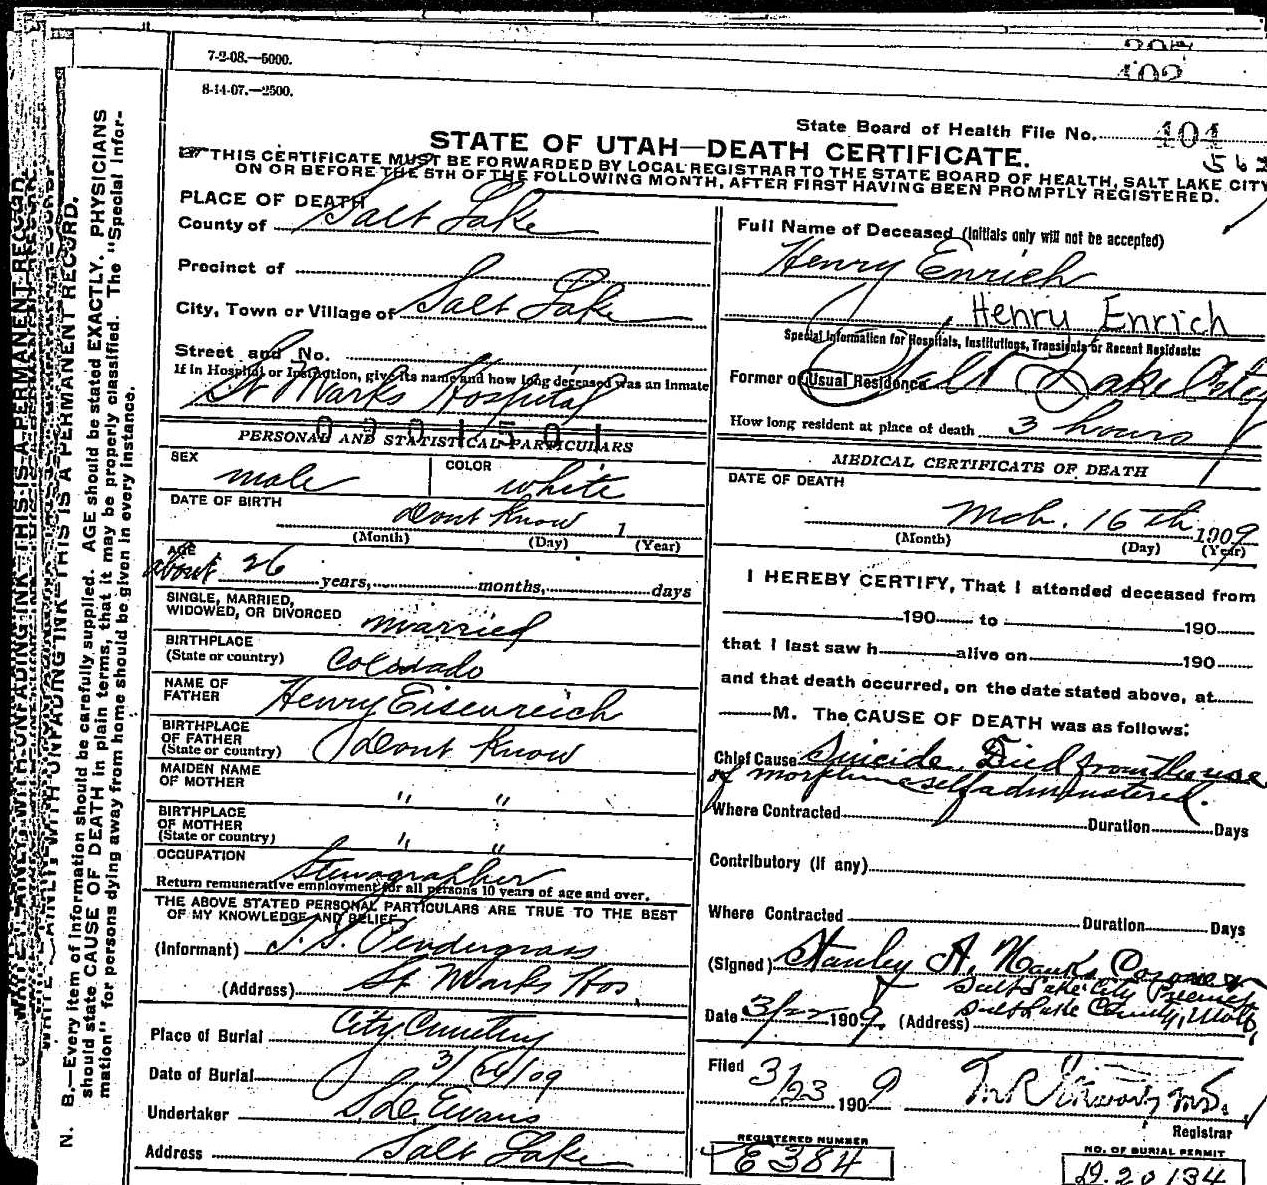 7-2-08.—5000.
402
8-14-07.—2500.
State Board of Health File No. 404
STATE OF UTAH—DEATH CERTIFICATE.
THIS CERTIFICATE MUST BE FORWARDED BY LOCAL REGISTRAR TO THE STATE BOARD OF HEALTH, SALT LAKE CITY
ON OR BEFORE THE 5TH OF THE FOLLOWING MONTH, AFTER FIRST HAVING BEEN PROMPTLY REGISTERED.
PLACE OF DEATH
County of Salt Lake
Precinct of
City, Town or Village of Salt Lake
Street and No.
If in Hospital or Institution, give its name and how long deceased was an Inmate
St Marks Hospital
PERSONAL AND STATISTICAL PARTICULARS
SEX male COLOR white
DATE OF BIRTH Dont Know 1
(Month) (Day) (Year)
AGE
about 26 years, months, days
SINGLE, MARRIED,
WIDOWED, OR DIVORCED married
BIRTHPLACE
(State or country) Colorado
NAME OF
FATHER Henry Eisenreich
BIRTHPLACE
OF FATHER
(State or country) Dont Know
MAIDEN NAME
OF MOTHER " "
BIRTHPLACE
OF MOTHER
(State or country) " "
OCCUPATION Stenographer
Return remunerative employment for all persons 10 years of age and over.
THE ABOVE STATED PERSONAL PARTICULARS ARE TRUE TO THE BEST
OF MY KNOWLEDGE AND BELIEF
(Informant) Pendergrass
(Address) St Marks Hos.
Place of Burial City Cemetery
Date of Burial
Undertaker Evans
Address Salt Lake
Full Name of Deceased (Initials only will not be accepted)
Henry Enrich
Henry Enrich
Special Information for Hospitals, Institutions, Transients or Recent Residents:
Former or Usual Residence Salt Lake City
How long resident at place of death 3 hours
MEDICAL CERTIFICATE OF DEATH
DATE OF DEATH
Mch. 16th 1909
(Month) (Day) (Year)
I HEREBY CERTIFY, That I attended deceased from
190 to 190
that I last saw h alive on 190
and that death occurred, on the date stated above, at
M. The CAUSE OF DEATH was as follows:
Chief Cause Suicide. Died from the use
of morphine self administered.
Where Contracted Duration Days
Contributory (if any)
Where Contracted Duration Days
(Signed) Stanley A. Hanks Coroner
Salt Lake City Precinct
Date 3/22 1909. (Address) Salt Lake County, Utah
Filed 3/23 1909
Registrar
REGISTERED NUMBER
E 384
NO. OF BURIAL PERMIT
D.20134
N. B.—Every item of information should be carefully supplied. AGE should be stated EXACTLY. PHYSICIANS
should state CAUSE OF DEATH in plain terms, that it may be properly classified. The "Special Infor-
mation" for persons dying away from home should be given in every instance.